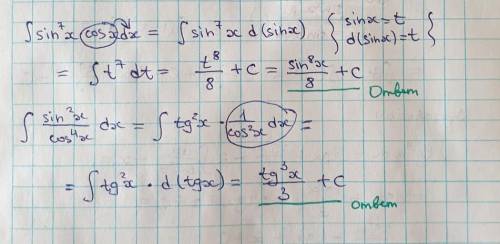 ∫sin⁷x cosx dx = ∫sin⁷x d(sinx) { sinx=t
d(sinx)=t }
= ∫t⁷dt = t⁸/8 + C = sin⁸x/8 + C
Ответ
∫ sin²x/cos⁴x dx = ∫tg²x · 1/cos²x dx =
= ∫tg²x · d(tgx) = tg³x/3 + C
ответ